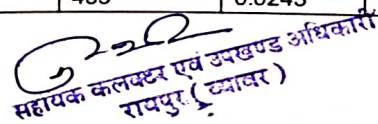 0.0243
सहायक कलक्टर एवं उपखण्ड अधिकारी
रायपुर ( ब्यावर )